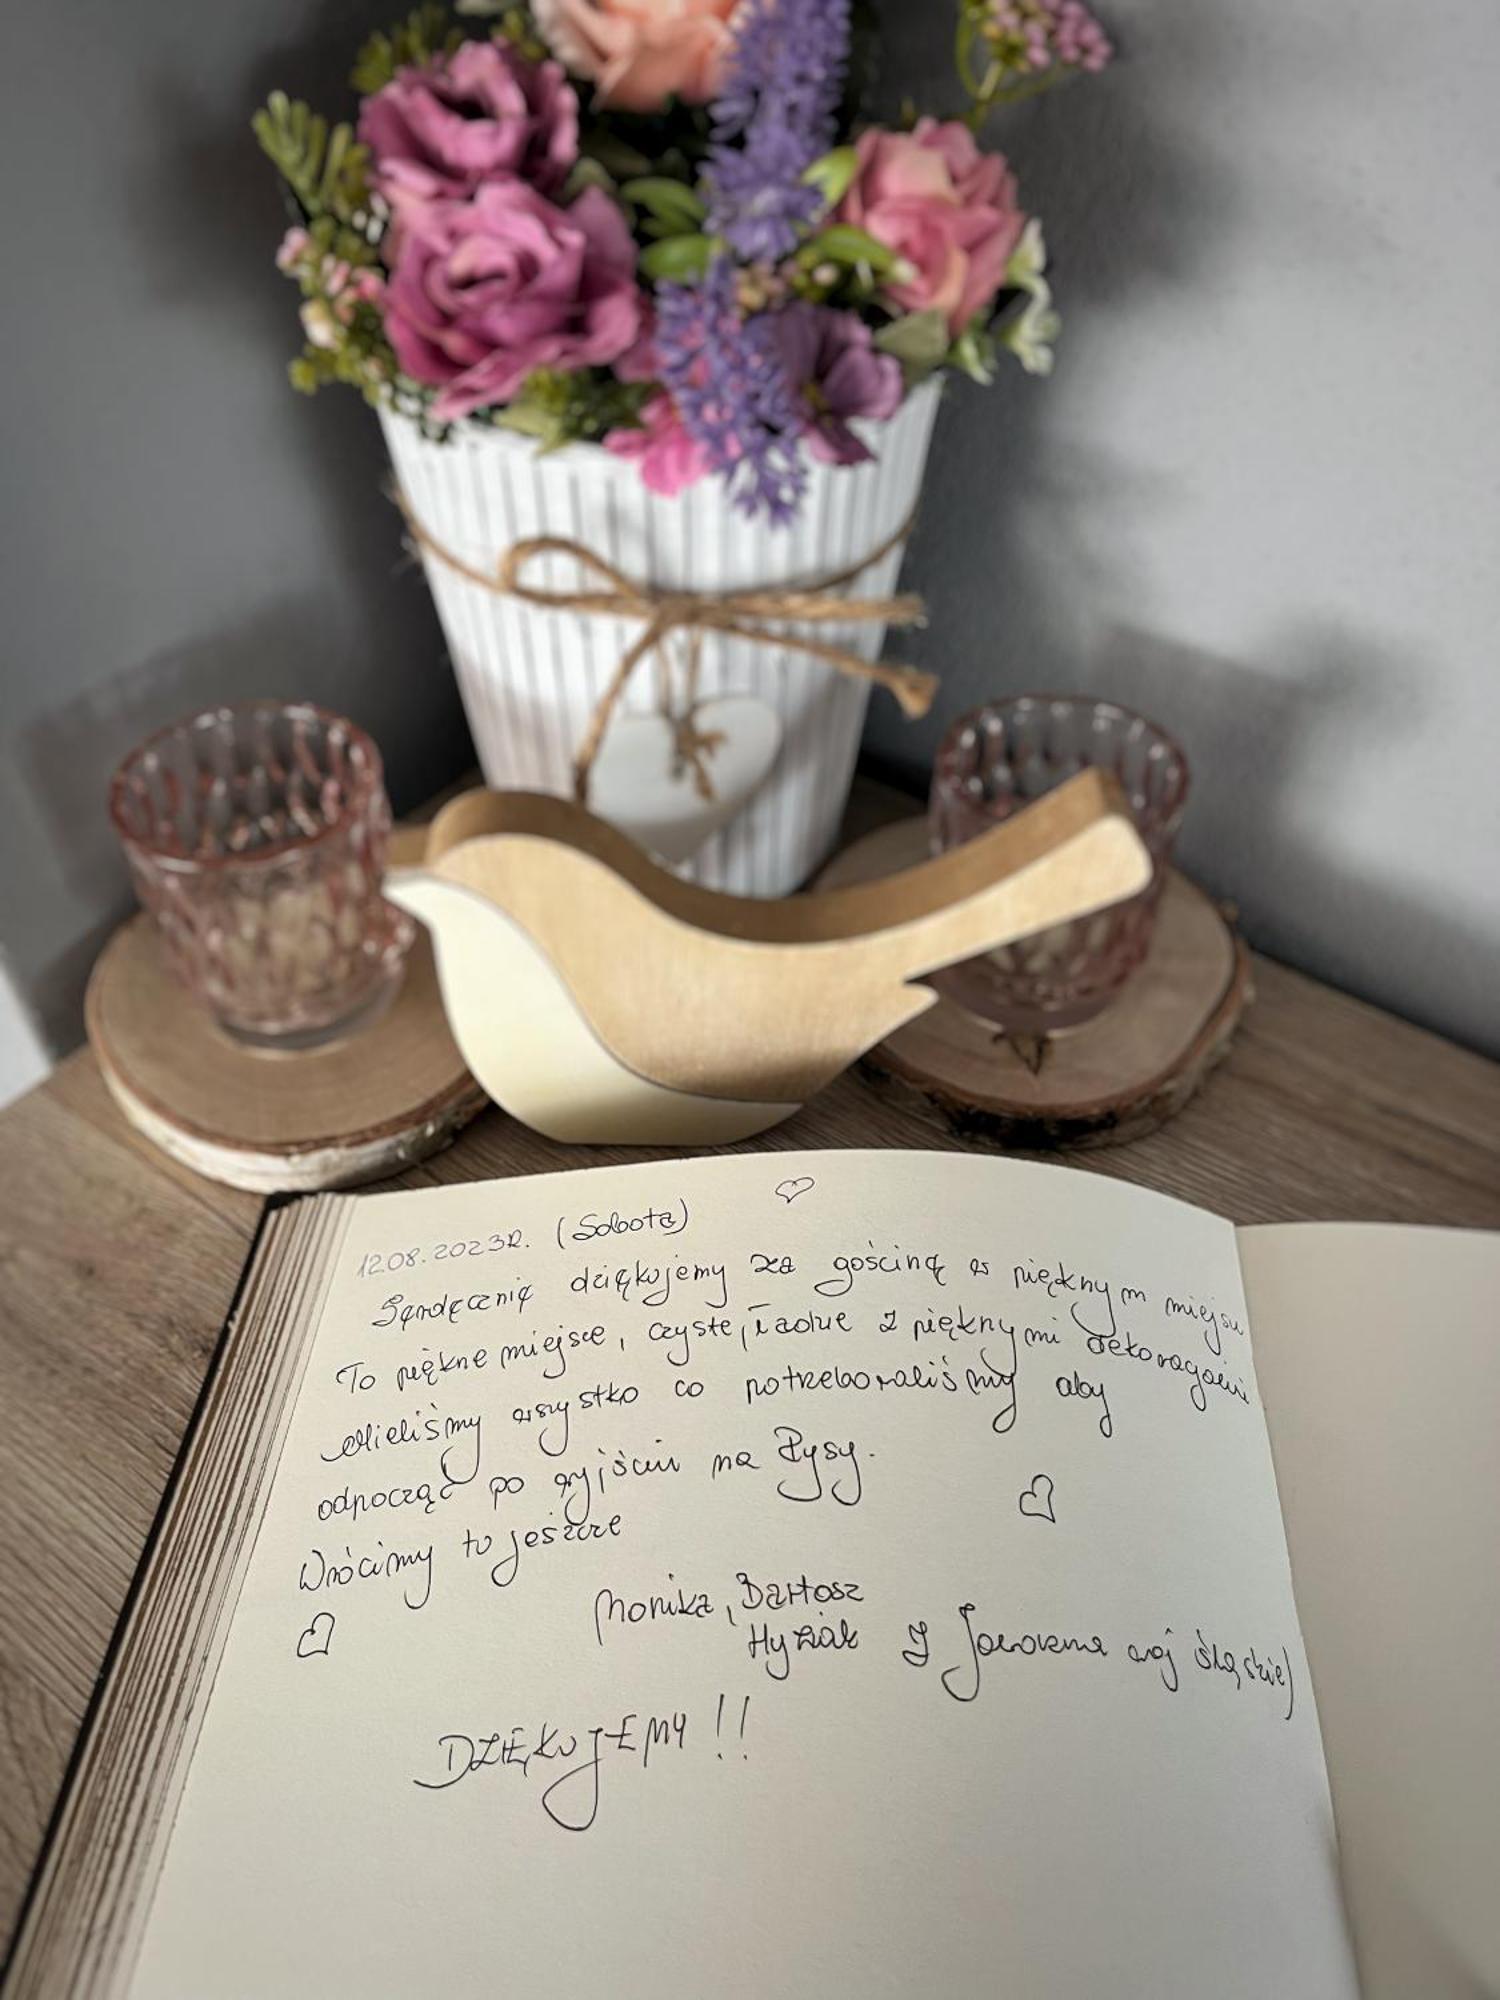 12.08.2023R. (Sobota)
Serdecznie dziękujemy za gościnę w pięknym miejscu
To piękne miejsce, czyste, ładne z pięknymi dekoracjami
Mieliśmy wszystko co potrzebowaliśmy aby
odpocząć po wyjściu na Rysy.
Wrócimy tu jeszcze
Monika, Bartosz
Hyziak z Jaworzna woj śląskie)
DZIĘKUJEMY !!